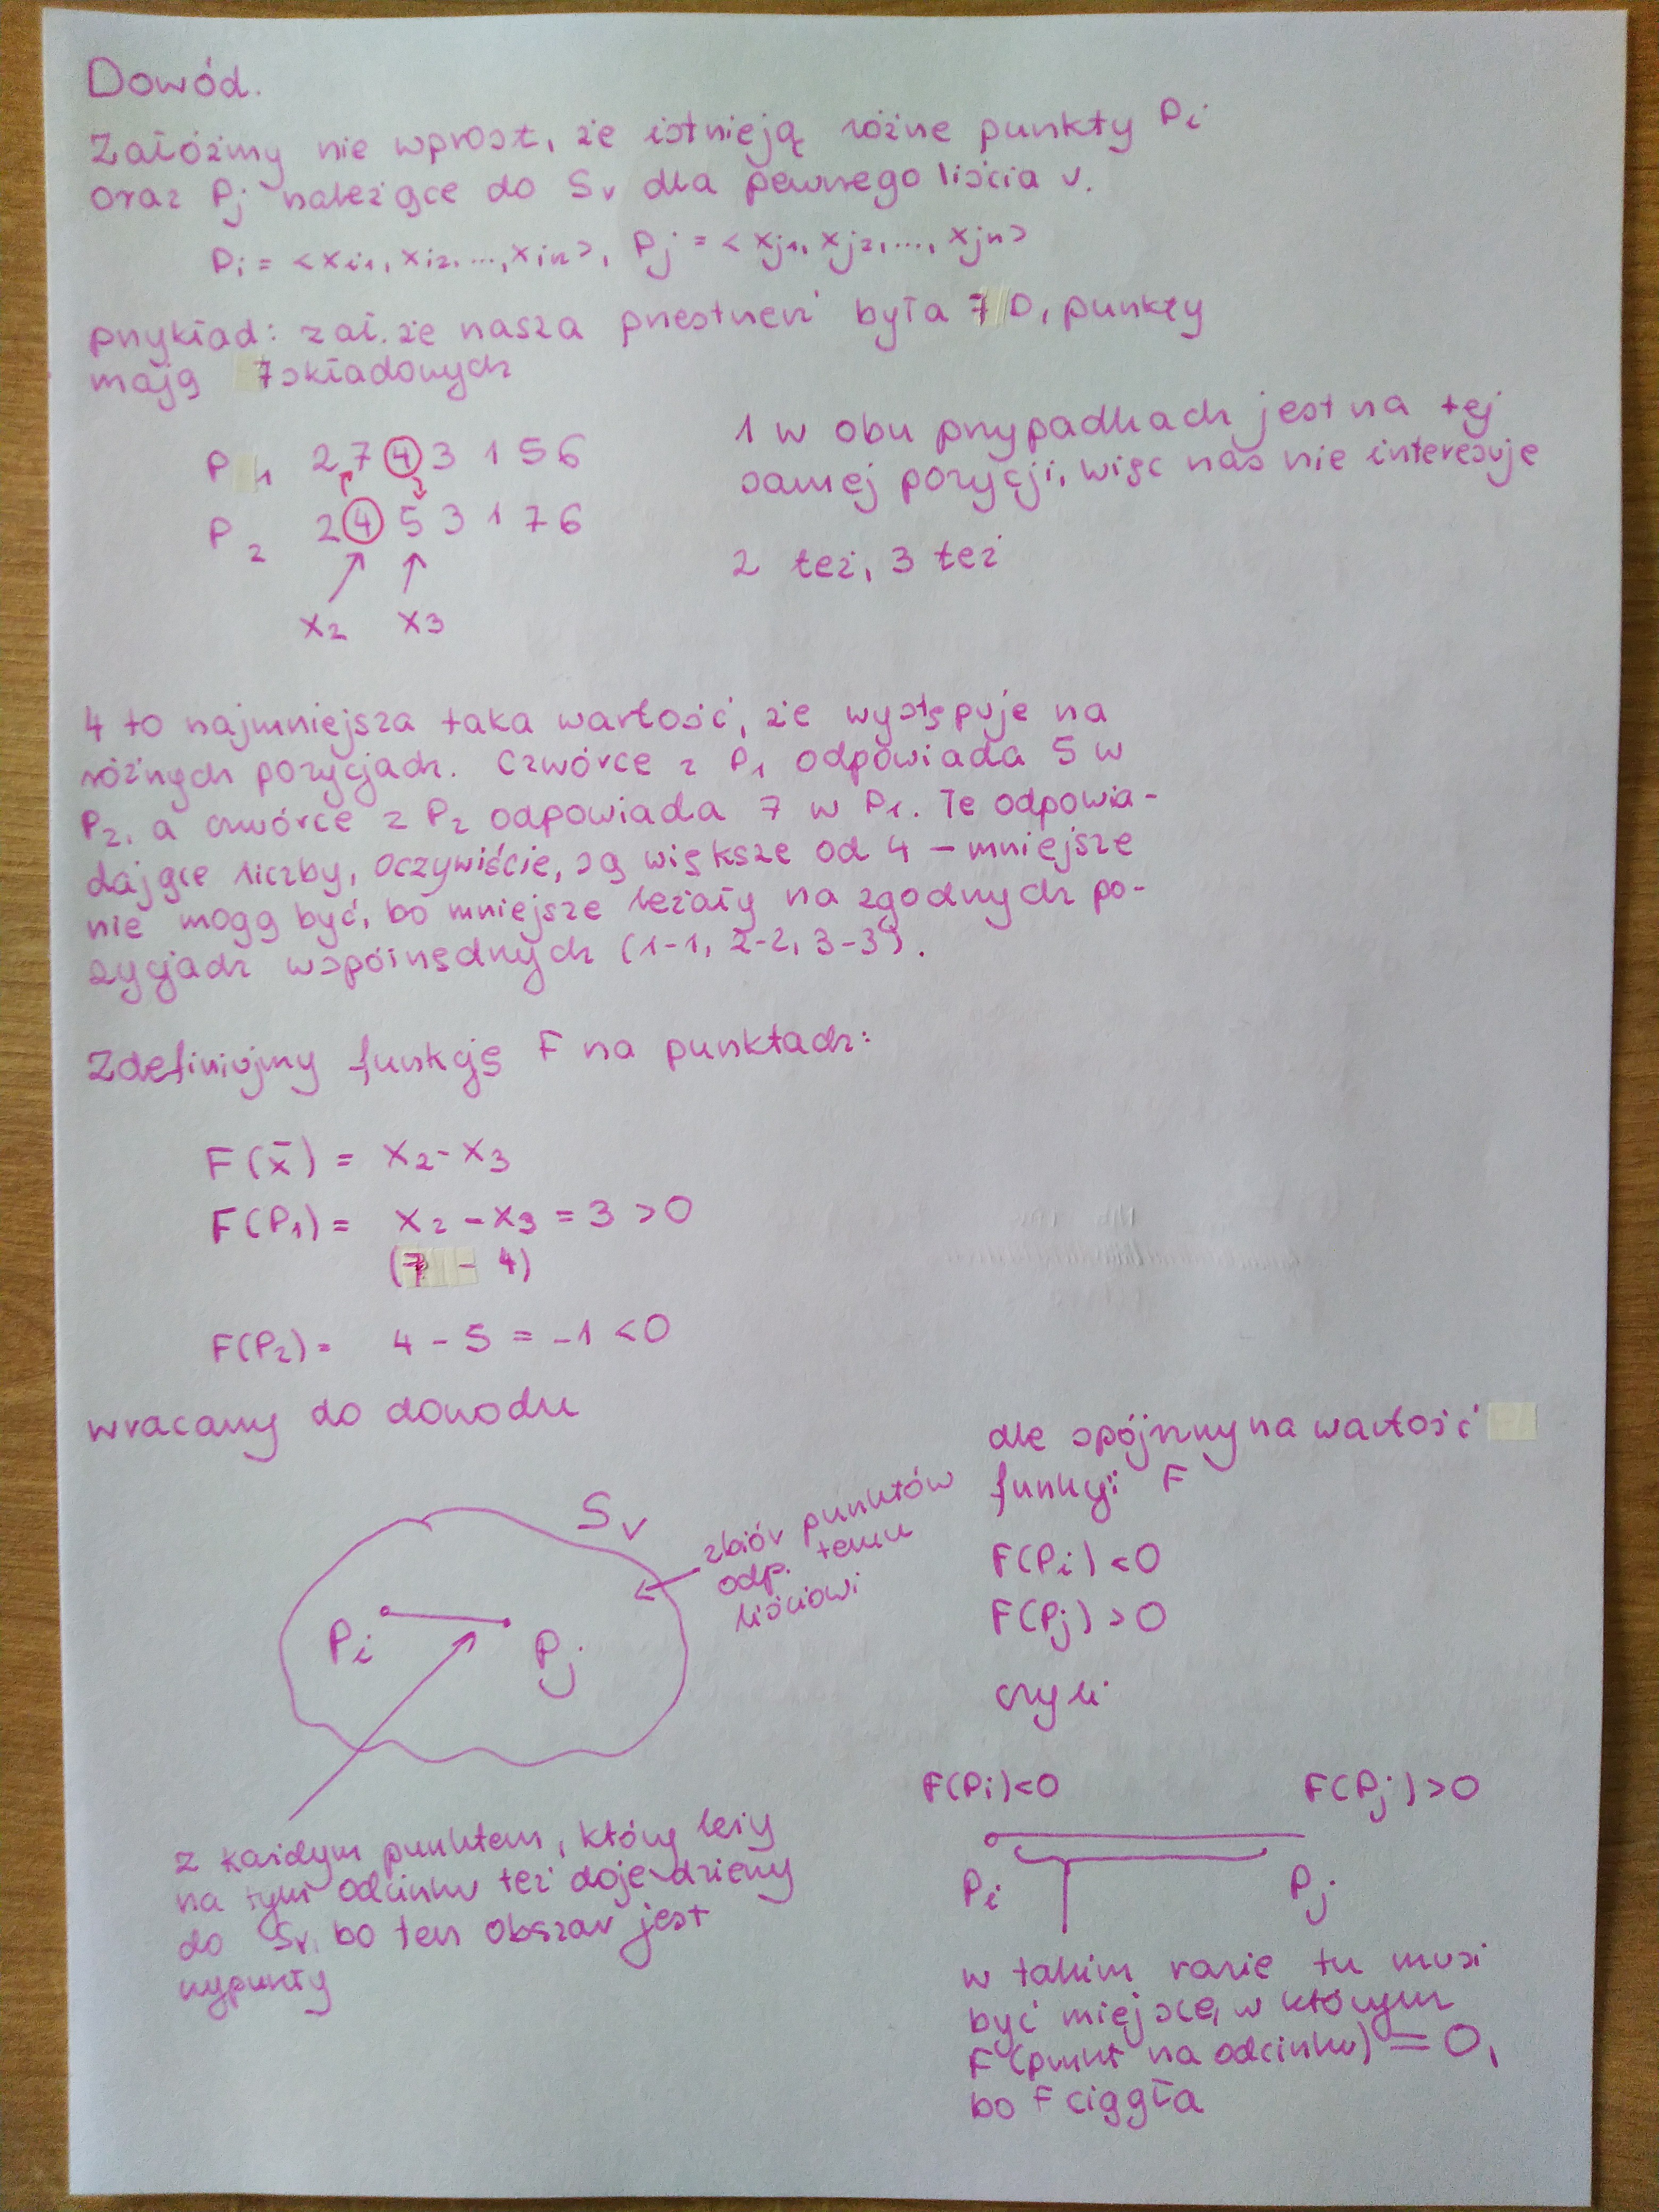 Dowód.
Załóżmy nie wprost, że istnieją różne punkty Pi
oraz Pj należące do Sv dla pewnego liścia v.
Pi = <xi1, xi2, ..., xin>, Pj = <xj1, xj2, ..., xjn>
przykład: zał. że nasza przestrzeń była 7D, punkty
mają 7 składowych
P1 2 7 4 3 1 5 6
P2 2 4 5 3 1 7 6
x2 x3
1 w obu przypadkach jest na tej
samej pozycji, więc nas nie interesuje
2 też, 3 też
4 to najmniejsza taka wartość, że występuje na
różnych pozycjach. Czwórce z P1 odpowiada 5 w
P2, a czwórce z P2 odpowiada 7 w P1. Te odpowia-
dające liczby, oczywiście, są większe od 4 – mniejsze
nie mogą być, bo mniejsze leżały na zgodnych po-
zycjach współrzędnych (1-1, 2-2, 3-3).
Zdefiniujmy funkcję F na punktach:
F(x̄) = x2 - x3
F(P1) = x2 - x3 = 3 > 0
(7 - 4)
F(P2) = 4 - 5 = -1 < 0
wracamy do dowodu
Sv
zbiór punktów
odp. temu
liściowi
Pi Pj
z każdym punktem, który leży
na tym odcinku też dojedziemy
do Sv, bo ten obszar jest
wypukły
ale spójrzmy na wartość
funkcji F
F(Pi) < 0
F(Pj) > 0
czyli
F(Pi) < 0 F(Pj) > 0
Pi Pj
w takim razie tu musi
być miejsce, w którym
F(punkt na odcinku) = 0,
bo F ciągła